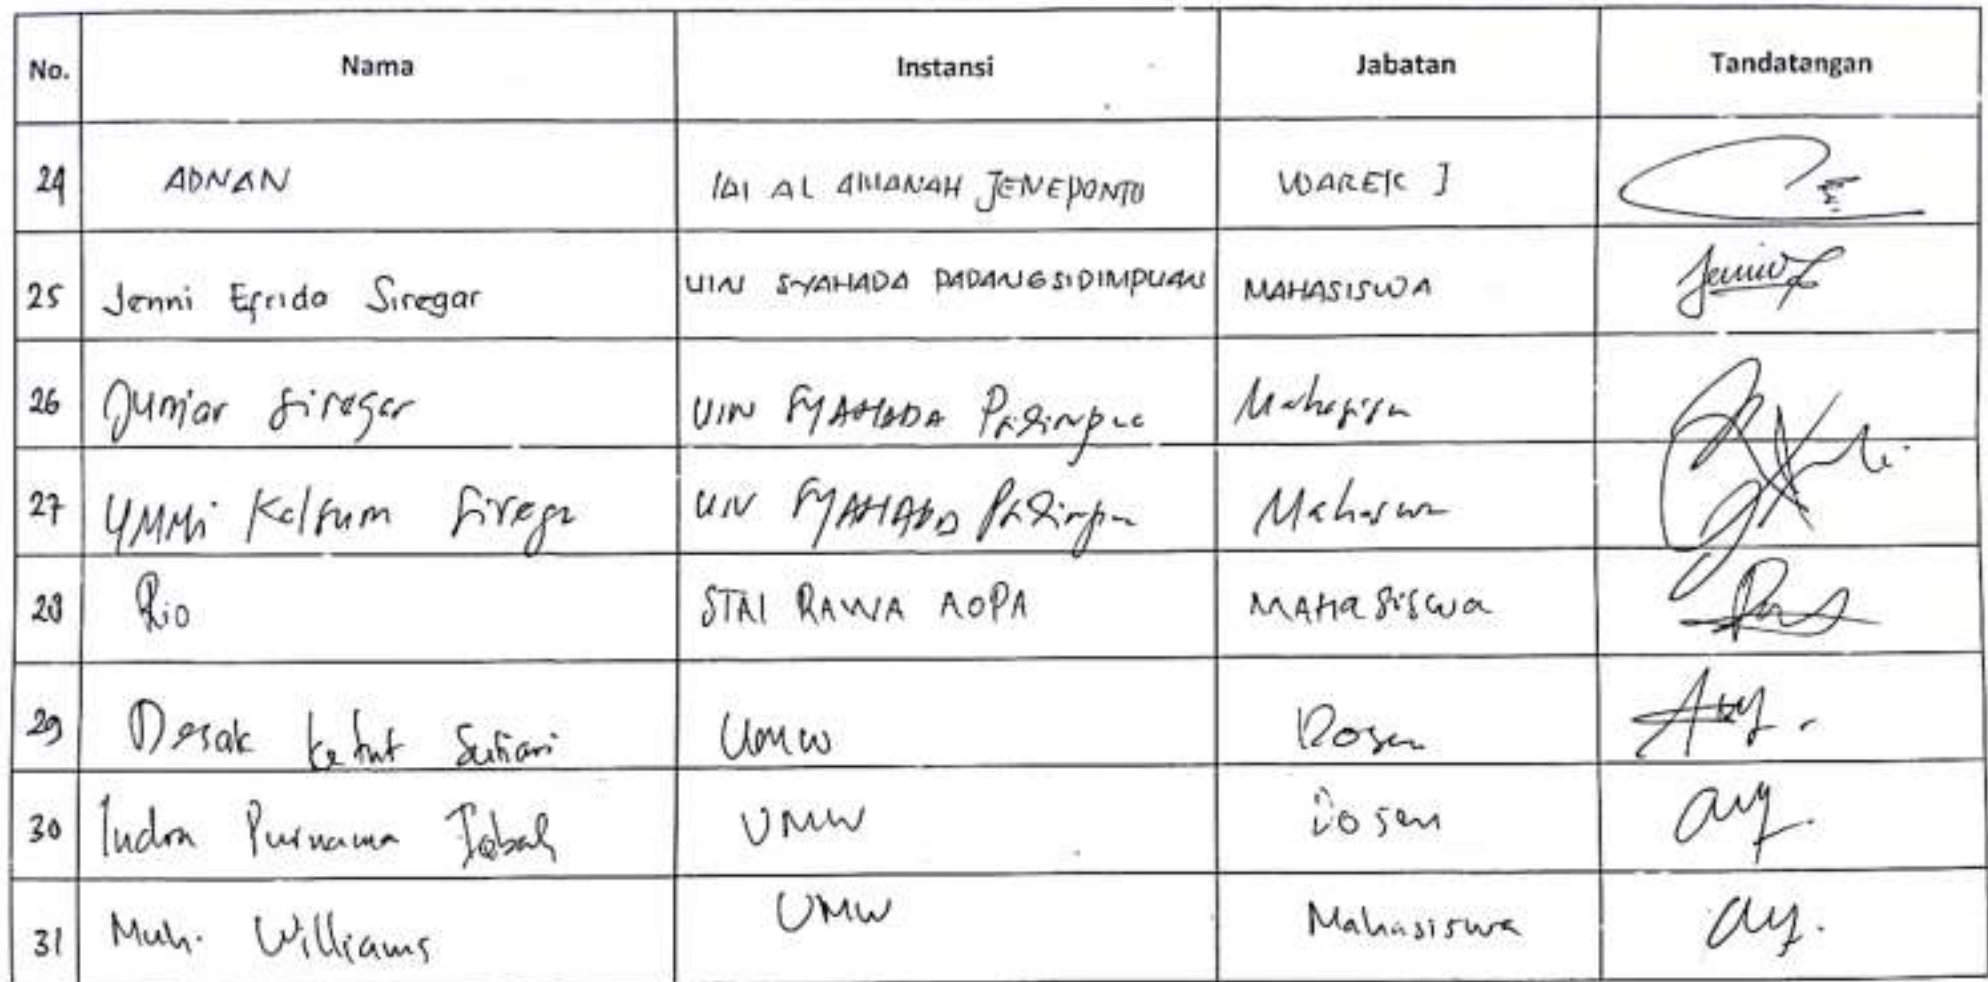 No. Nama Instansi Jabatan Tandatangan
24 ADNAN IAI AL AMANAH JENEPONTO WAREK I
25 Jenni Efrida Siregar UIN SYAHADA PADANGSIDIMPUAN MAHASISWA
26 Juniar Siregar UIN SYAHADA
27 UMMi Kalsum UIN SYAHADA
28 Rio STAI RAWA AOPA MAHAsiswa
29 Desak Ketut Sutiari UMW Dosen
30 Indra Purnama Iqbal UMW Dosen
31 Muh. Williams UMW Mahasiswa